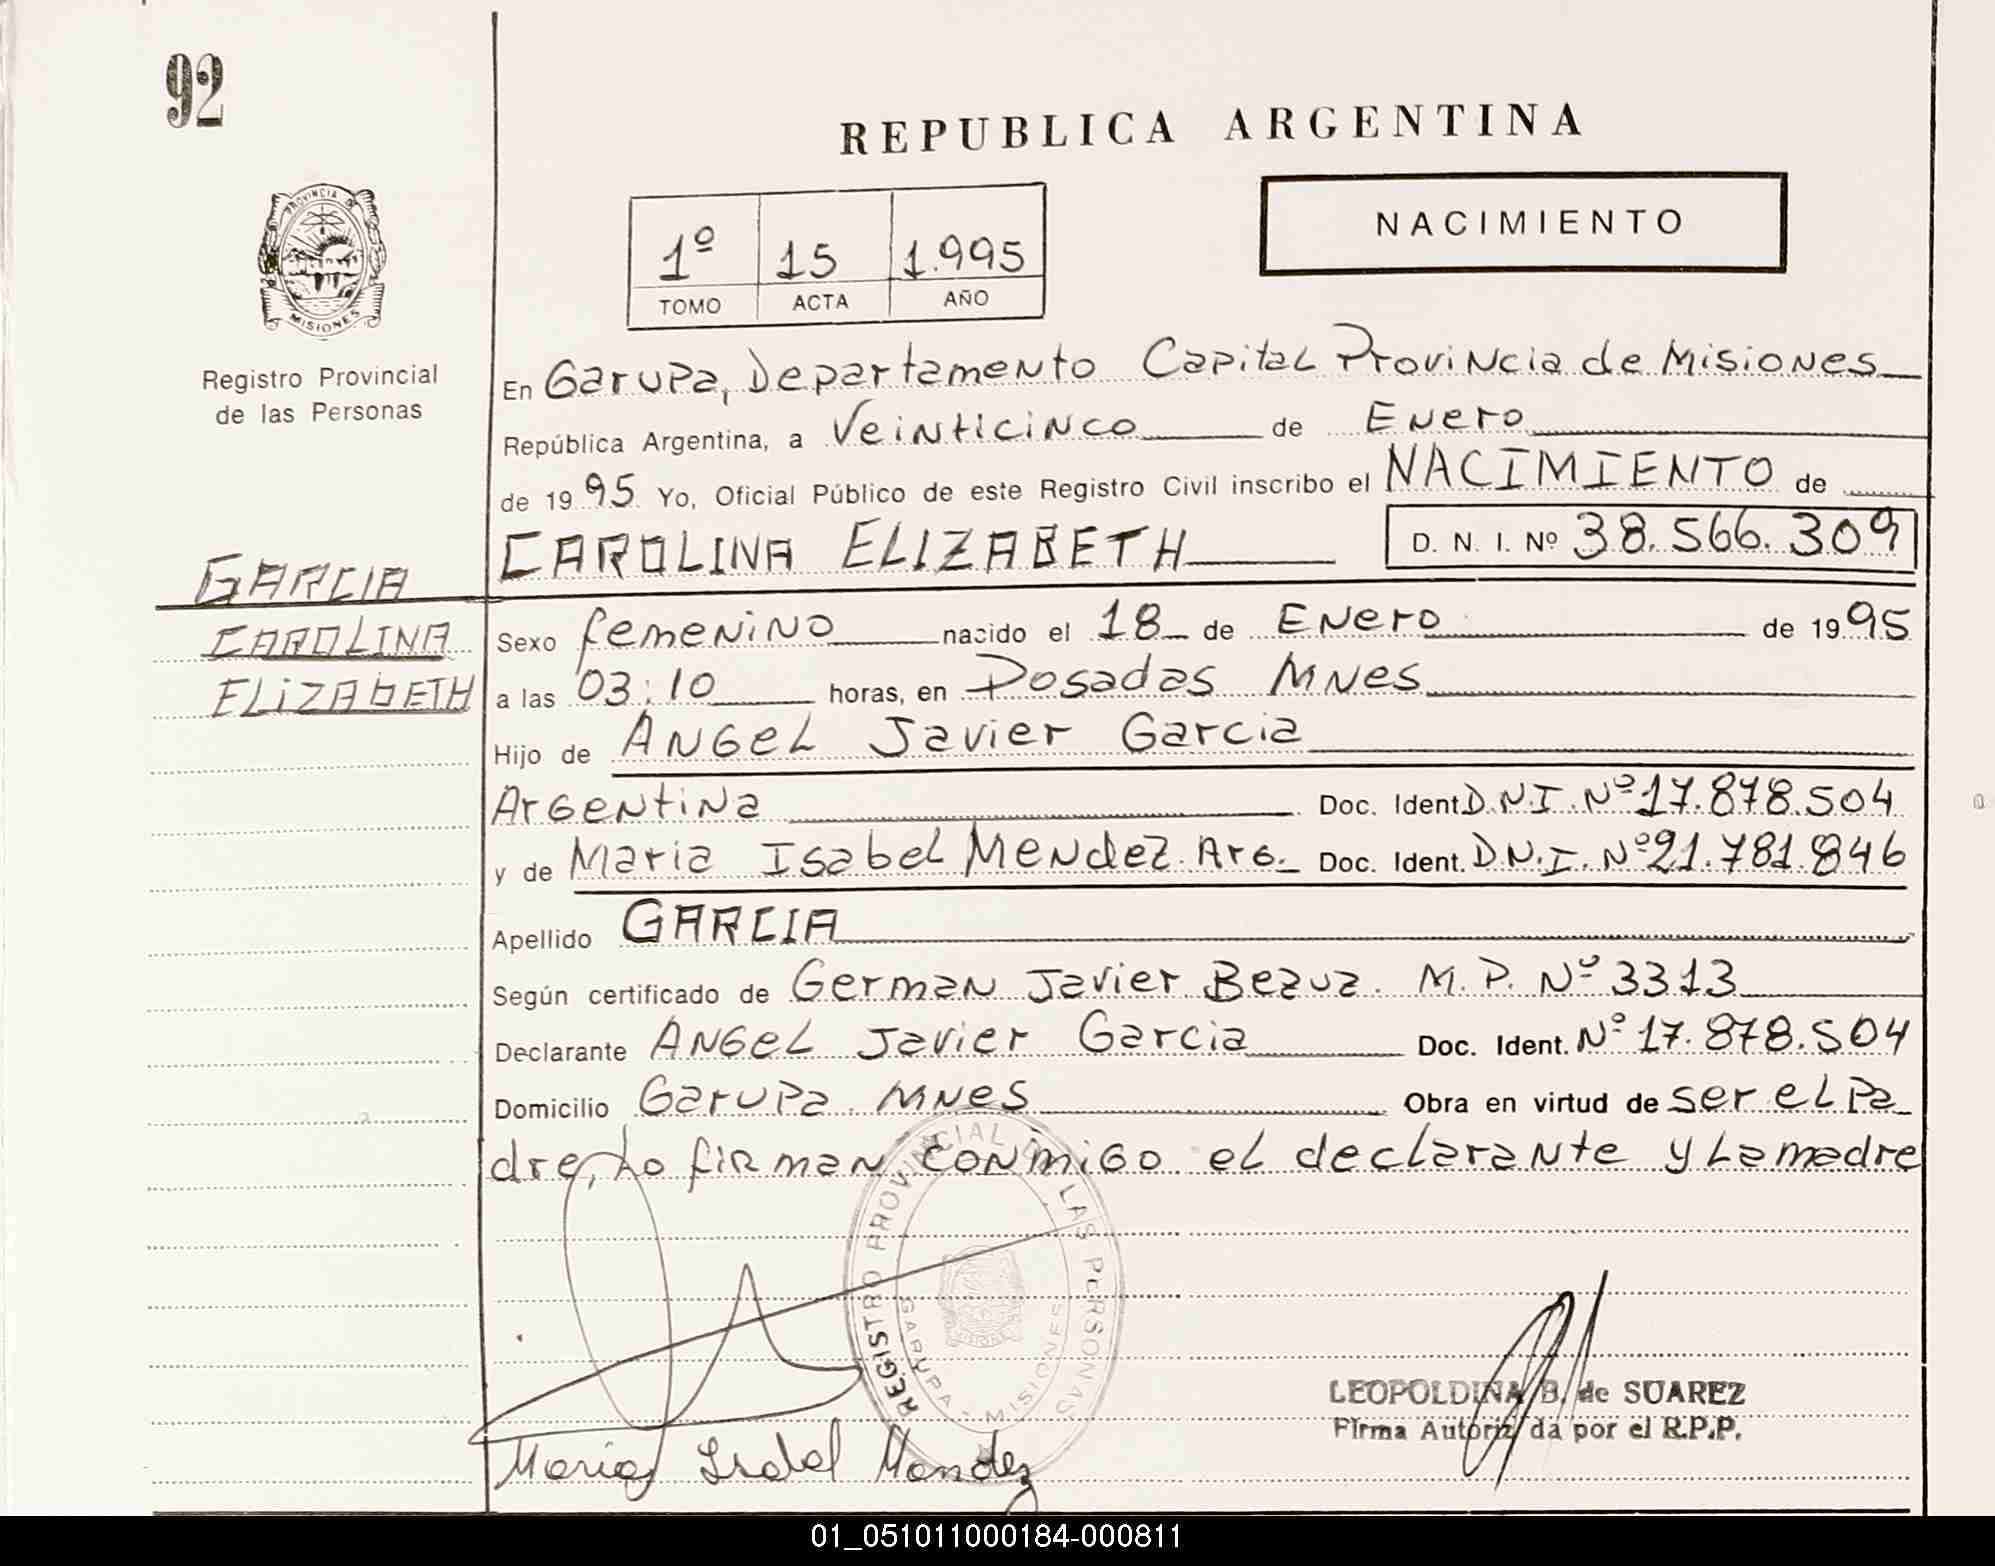 92
REPUBLICA ARGENTINA
PROVINCIA DE
MISIONES
Registro Provincial
de las Personas
1º 15 1.995
TOMO ACTA AÑO
NACIMIENTO
En Garupa, Departamento Capital Provincia de Misiones
República Argentina, a Veinticinco de Enero
de 1995 Yo, Oficial Público de este Registro Civil inscribo el NACIMIENTO de
CAROLINA ELIZABETH D. N. I. Nº 38.566.309
GARCIA
CAROLINA
ELIZABETH
Sexo femenino nacido el 18 de Enero de 1995
a las 03:10 horas, en Posadas Mnes
Hijo de Angel Javier Garcia
Argentina Doc. Ident D.N.I. Nº 17.878.504
y de Maria Isabel Mendez Arg. Doc. Ident. D.N.I. Nº 21.781.846
Apellido GARCIA
Según certificado de German Javier Bezuz. M.P. Nº 3313
Declarante Angel Javier Garcia Doc. Ident. Nº 17.878.504
Domicilio Garupa Mnes Obra en virtud de ser el Pa
dre, Lo firman conmigo el declarante y La madre
REGISTRO PROVINCIAL DE LAS PERSONAS
GARUPA - MISIONES
LEOPOLDINA B. de SUAREZ
Firma Autorizada por el R.P.P.
Maria Isabel Mendez
01_051011000184-000811